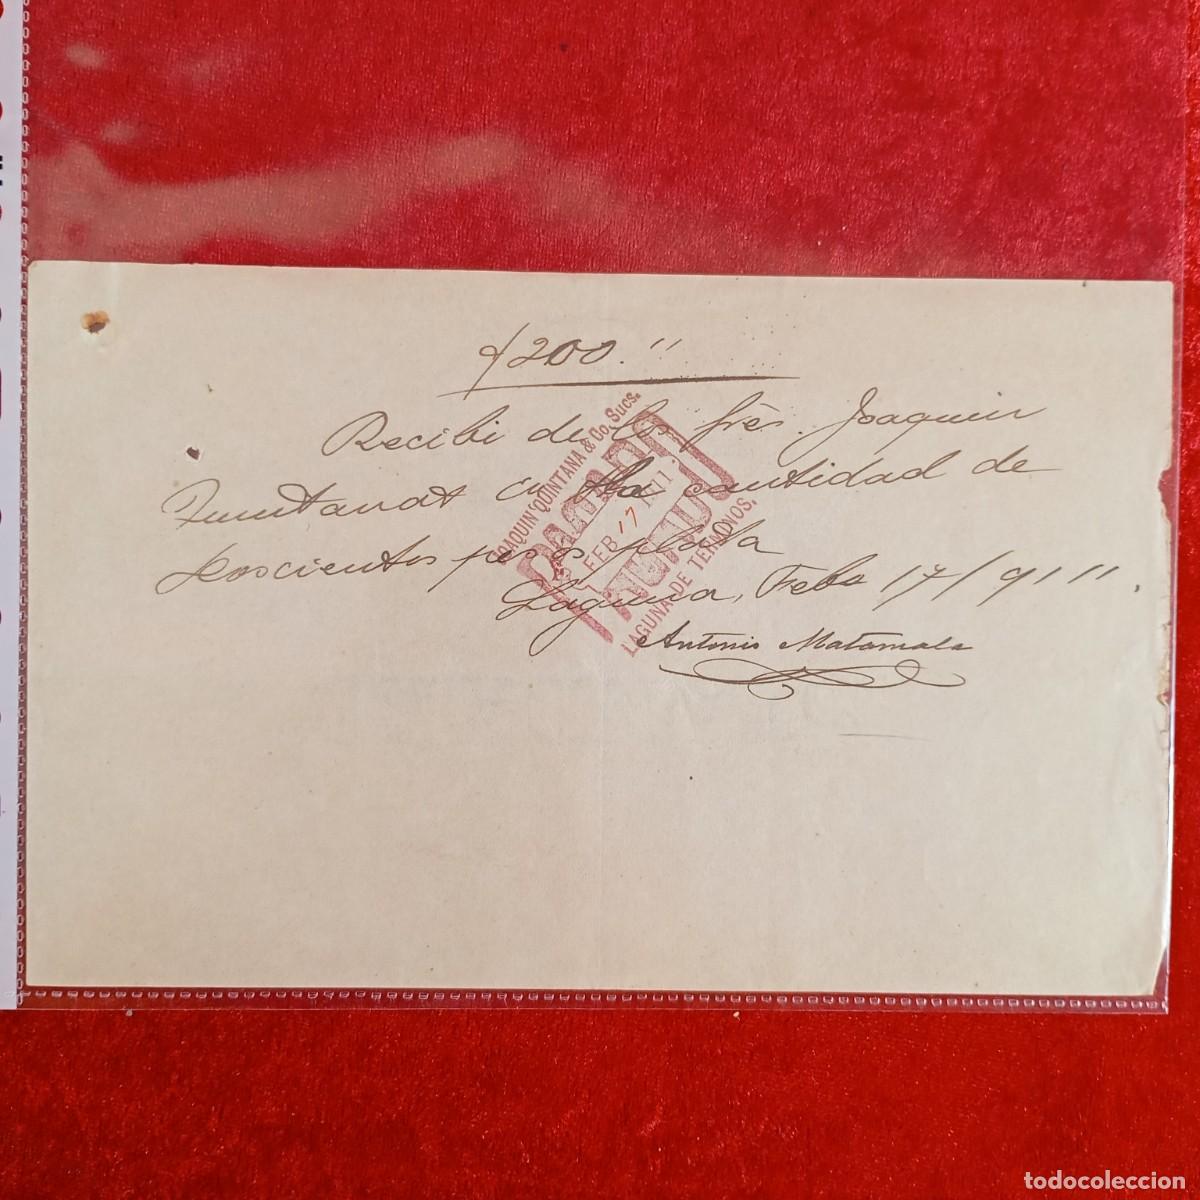 $200."
Recibi de los Sres. Joaquin
Quintana la cantidad de
Doscientos pesos plata
Laguna, Feb 17/911.
Antonio Matamala
JOAQUIN QUINTANA & Co. Sucs.
PAGADO
FEB 17 1911
LAGUNA DE TERMINOS.
todocoleccion